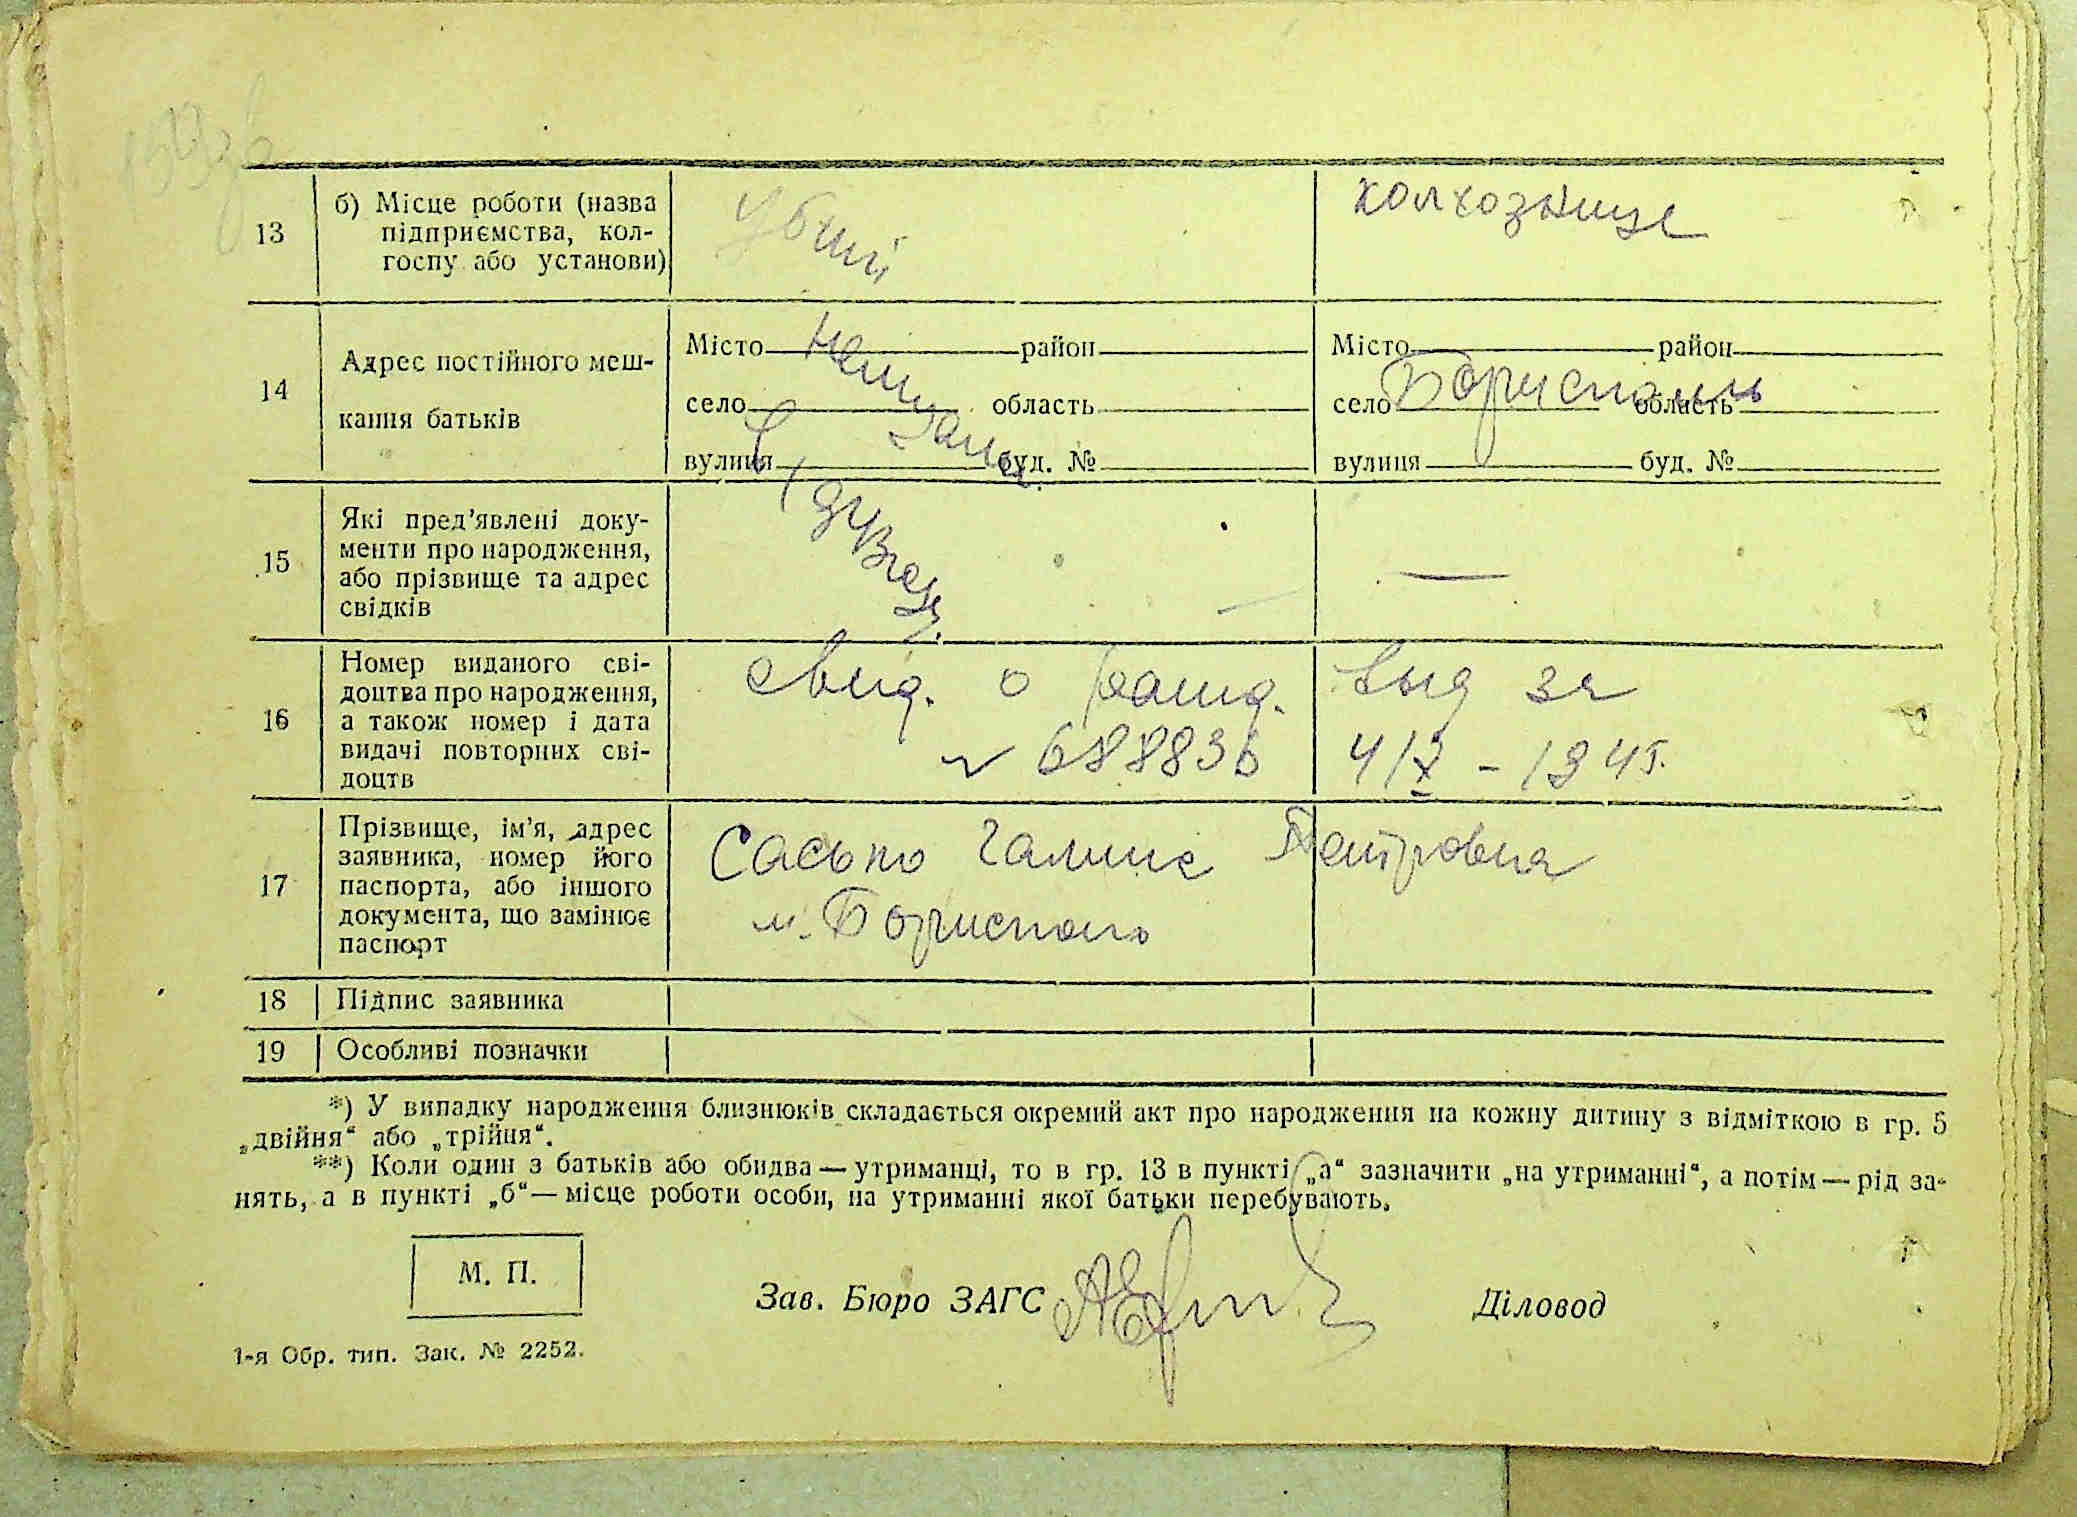 13
б) Місце роботи (назва
підприємства, кол-
госпу або установи)
Убит
колхознице
14
Адрес постійного меш-
кання батьків
Місто район
село область
вулиця буд. №
Місто район
село Бориспопль область
вулиця буд. №
15
Які пред'явлені доку-
менти про народження,
або прізвище та адрес
свідків
—
16
Номер виданого сві-
доцтва про народження,
а також номер і дата
видачі повторних сві-
доцтв
свид. о рожд. выд за
№ 688836 4/X - 1945.
17
Прізвище, ім'я, адрес
заявника, номер його
паспорта, або іншого
документа, що замінює
паспорт
Сасько Галина Петровна
м. Бориспопль
18 Підпис заявника
19 Особливі позначки
*) У випадку народження близнюків складається окремий акт про народження на кожну дитину з відміткою в гр. 5
„двійня“ або „трійня“.
**) Коли один з батьків або обидва — утриманці, то в гр. 13 в пункті „а“ зазначити „на утриманні“, а потім — рід за-
нять, а в пункті „б“ — місце роботи особи, на утриманні якої батьки перебувають.
М. П.
Зав. Бюро ЗАГС
Діловод
1-я Обр. тип. Зак. № 2252.